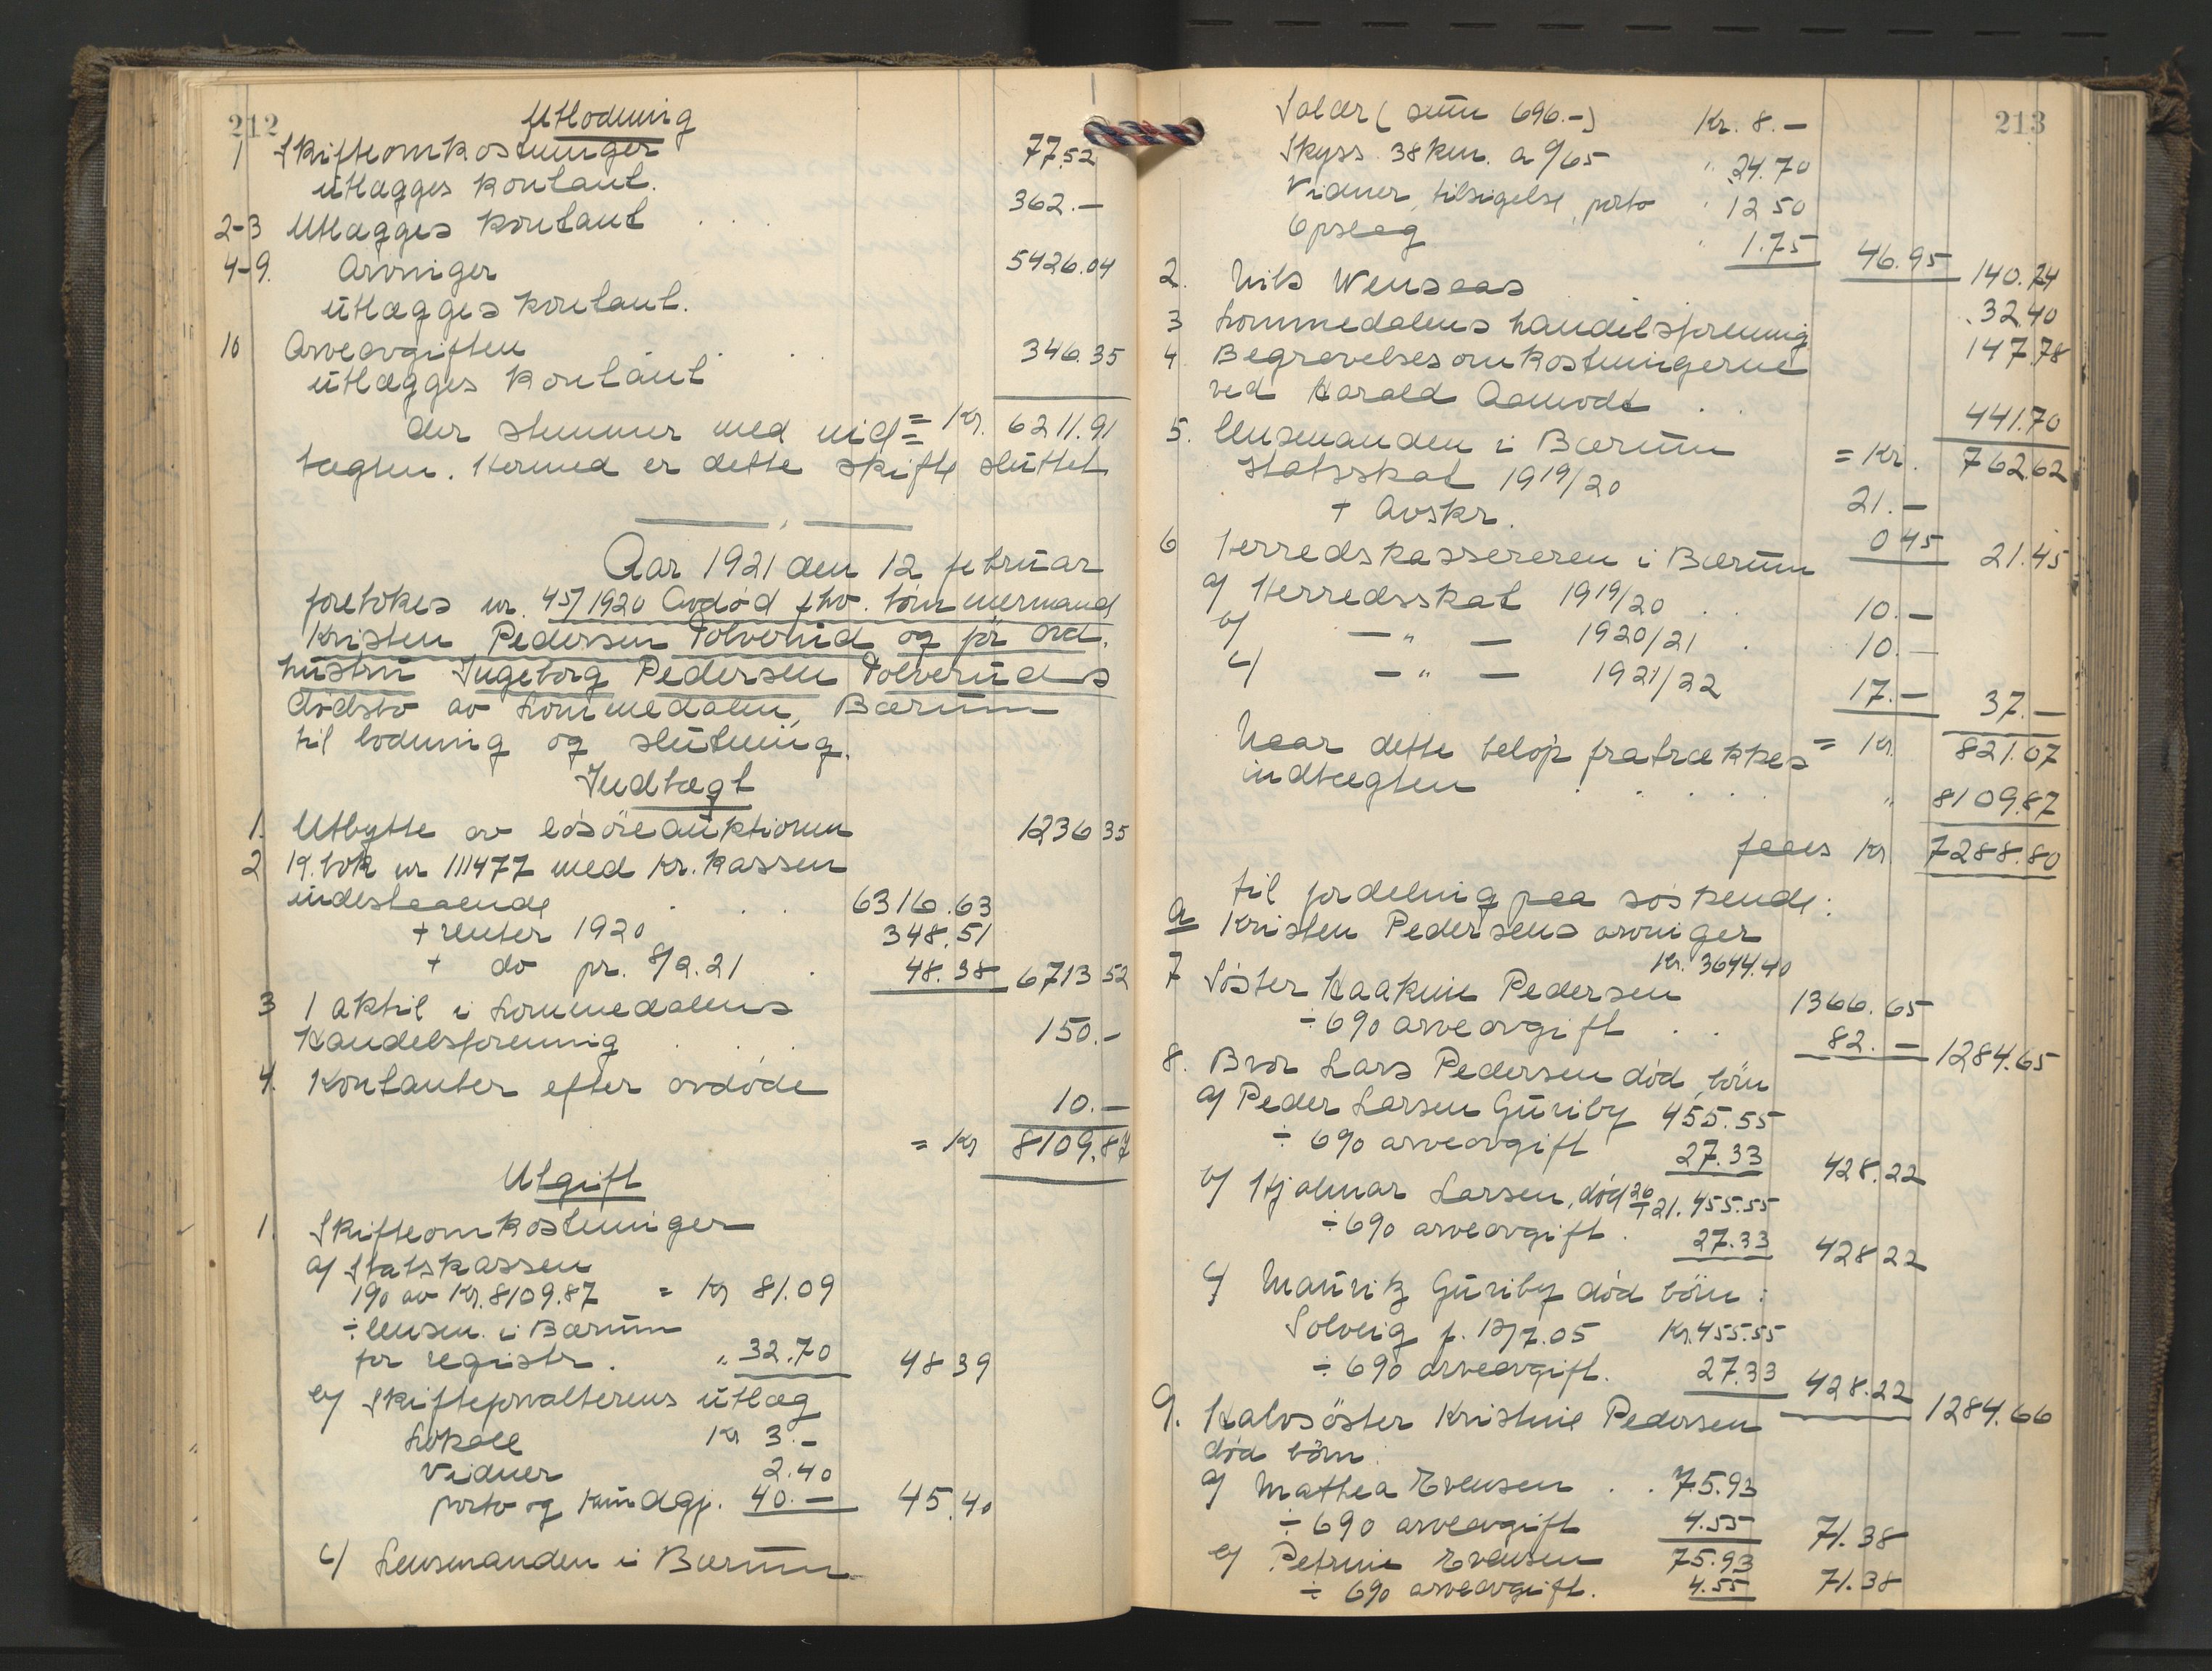 212
Utlodning
1 Skifteomkostninger
utlægges kontant. 77.52
2-3 Utlægges kontant . . 362.-
4-9. Arvinger
utlægges kontant. 5426.04
10 Arveavgiften . .
utlægges kontant 346.35
der stemmer med ind= = Kr. 6211.91
tægten. Hermed er dette skifte sluttet.
Aar 1921 den 12 februar
foretokes nr. 457/1920 Avdød fhv. tømmermand
Kristen Pedersen Tolverud og før avd.
hustru Ingeborg Pedersen Tolveruds
dødsbo av Lommedalen, Bærum
til lodning og slutning.
Indtægt
1. Utbytte av løsøreauktionen 1236 35
2 19. bok nr 111477 med Kr. kassen
indestaaende . . . 6316.63
+ renter 1920 348.51
+ do pr. 8/2.21 . 48.38 6713 52
3 1 aktie i Lommedalens
Handelsforening . . . 150.-
4. Kontanter efter avdøde 10.-
= Kr 8109.87
Utgift
1. Skifteomkostninger
a/ Statskassen
1% av Kr. 8109.87 = Kr 81.09
÷ lensm. i Bærum
for registr. " 32.70 48 39
b/ Skifteforvalterens utlæg
Lokale Kr 3.-
Vidner 2.40
porto og kundgj. 40.- 45.40
c/ Lensmanden i Bærum
213
Salær (sum 696.-) Kr. 8.-
Skyss 38 km. a 0/65 " 24.70
Vidner, tilsigelse, porto " 12 50
Opslag " 1.75 46.95 140.74
2. Nils Wensaas 32.40
3 Lommedalens handelsforening 147.78
4 Begravelsesomkostningerne
ved Harald Aamodt . . 441.70
5. Lensmanden i Bærum = Kr. 762.62
Statsskat 1919/20 21.-
+ Avskr. 0 45 21.45
6 Herredskassereren i Bærum
a/ Herredsskat 1919/20 . . 10.-
b/ - " - 1920/21 . 10.-
c/ - " - 1921/22 17.- 37.-
Naar dette beløp fratrækkes = Kr. 821.07
indtægten . . . . " 8109.87
faaes Kr 7288.80
til fordeling paa søskende:
A Kristen Pedersens arvinger
Kr. 3644.40
7 Søster Haakine Pedersen 1366.65
÷ 6% arveavgift . . 82.- 1284.65
8. Bror Lars Pedersen død, børn
a/ Peder Larsen Guriby 455.55
÷ 6% arveavgift 27.33 428.22
b/ Hjalmar Larsen, død 26/1 21. 455.55
÷ 6% arveavgift . 27.33 428 22
c/ Mauritz Guriby død børn:
Solveig f. 12/7.05 Kr. 455.55
÷ 6% arveavgift. 27.33 428.22 1284.66
9. Halvsøster Kristine Pedersen
død børn:
a/ Mathea Evensen . . 75.93
÷ 6% arveavgift 4.55 71.38
b/ Petrine Evensen 75.93
÷ 6% arveavgift. 4.55 71.38